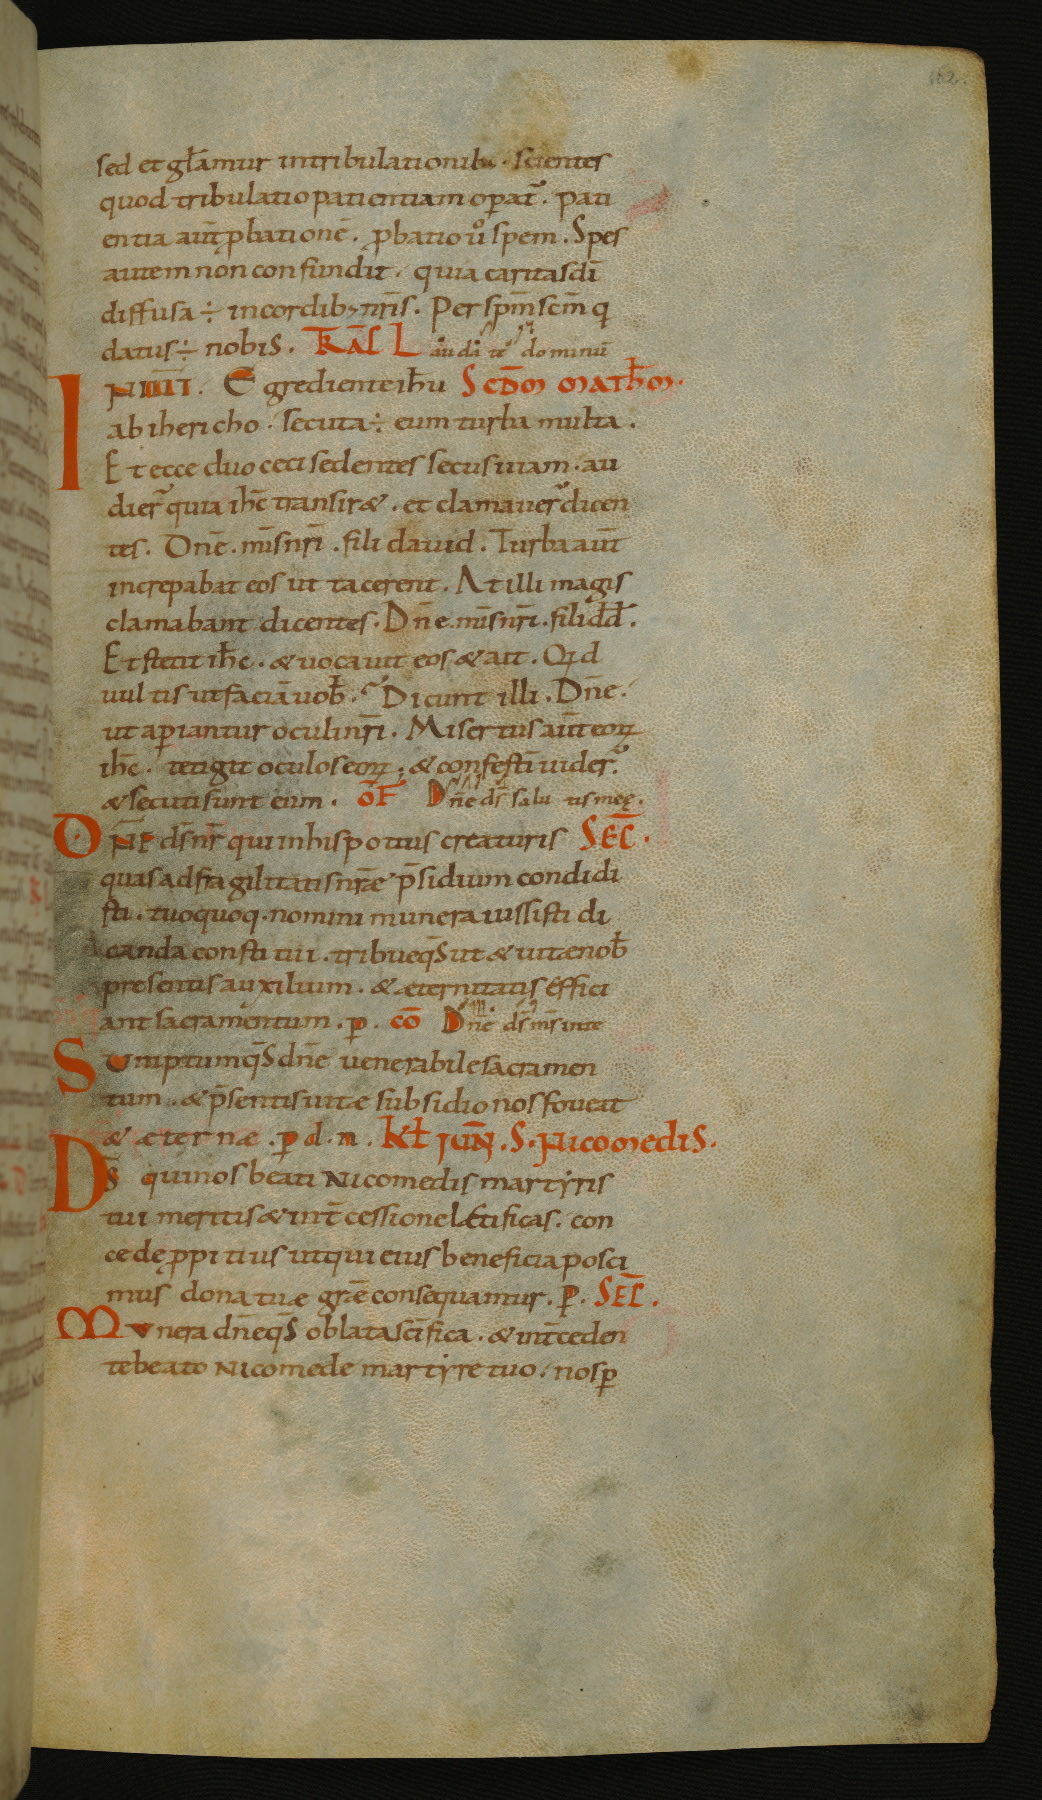 162.
sed et gl̄amur in tribulationib; . scientes
quod tribulatio patientiam operat̄ . pati
entia aut̄ ꝓbationē . ꝓbatio uº spem . Spes
autem non confundit . quia caritas dī
diffusa ÷ in cordib; nr̄is . Per sp̄m sc̄m q
datus ÷ nobis . TRAC̄ L audate dominū
IN IIII . Egrediente ih̄u SCDM MATH̄M .
ab ihericho . secuta ÷ eum turba multa .
Et ecce duo ceci sedentes secus uiam . au
dier̄ quia ih̄c transir& . et clamauer̄ dicen
tes . Dn̄e . mis̄ nr̄i . fili dauid . Turba aut̄
increpabat eos ut tacerent . At illi magis
clamabant dicentes . Dn̄e . mis̄ nr̄i . fili dd̄ .
Et stetit ih̄c . & uocauit eos & ait . Qid
uultis ut faciā uob̄ . Dicunt illi . Dn̄e .
ut aperiantur oculi nr̄i . Misertus aut̄ eoꝝ
ih̄c . tetigit oculos eoꝝ . & confestī uider̄ .
& secuti sunt eum . OF̄ Dn̄e ds̄ salutis meę .
DN̄E ds̄ nr̄ qui in his potius creaturis SEC̄ .
quas ad fragilitatis nr̄ae p̄sidium condidi
sti . tuo quoq . nomini munera iussisti di
canda constitui . tribue qs̄ ut & uitae nob̄
presentis auxilium . & aeternitatis effici
ant sacramentum . p . CŌ Dn̄e ds̄ ms̄ in te
Sumptum qs̄ dn̄e uenerabile sacramen
tum . & p̄sentis uitae subsidio nos foueat
& aeternae . p d . n . KŁ IUN̄ . S . NICOMEDIS .
DS̄ qui nos beati Nicomedis martyris
tui meritis & int̄cessione laetificas . con
cede ꝓpitius ut qui eius beneficia posci
mus dona tuae grāe consequamur . P . SEC̄ .
Munera dn̄e qs̄ oblata sc̄ifica . & int̄ceden
te beato Nicomede martyre tuo . nos p